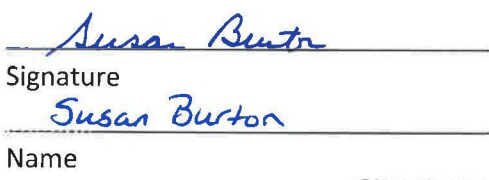 Susan Burton
Signature
Susan Burton
Name